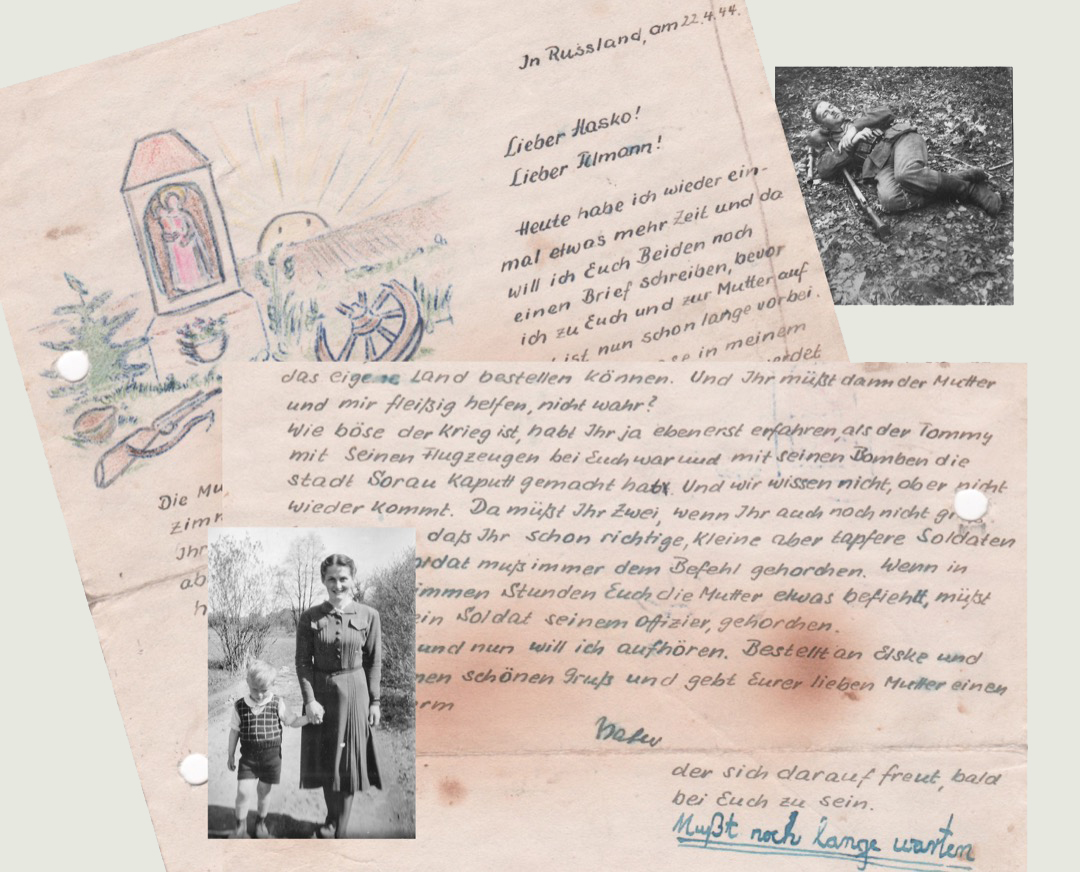 In Russland, am 22.4.44.
Lieber Hasko!
Lieber Tilmann!
Heute habe ich wieder ein-
mal etwas mehr Zeit und da
will ich Euch Beiden noch
einen Brief schreiben, bevor
ich zu Euch und zur Mutter auf
ist nun schon lange vorbei.
in meinem
Die Mu
zimm
Ihr
ab
h
das eigene Land bestellen können. Und Ihr müßt dann der Mutter
und mir fleißig helfen, nicht wahr?
Wie böse der Krieg ist, habt Ihr ja eben erst erfahren als der Tommy
mit seinen Flugzeugen bei Euch war und mit seinen Bomben die
Stadt Sorau Kaputt gemacht hat. Und wir wissen nicht, ob er nicht
wieder kommt. Da müßt Ihr Zwei, wenn Ihr auch noch nicht gr
daß Ihr schon richtige, kleine aber tapfere Soldaten
ldat muß immer dem Befehl gehorchen. Wenn in
immen Stunden Euch die Mutter etwas befiehlt, müßt
ein Soldat seinem Offizier, gehorchen.
und nun will ich aufhören. Bestellt an Elske und
nen schönen Gruß und gebt Eurer lieben Mutter einen
orm
Vater
der sich darauf freut, bald
bei Euch zu sein.
Mußt noch lange warten